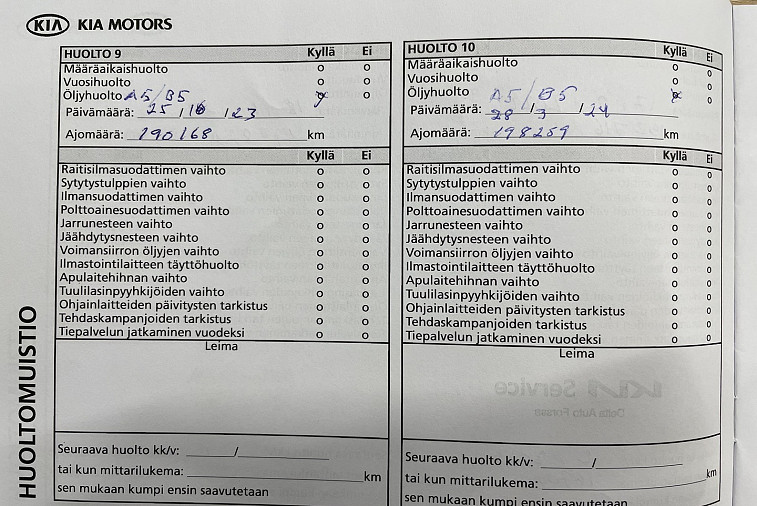 KIA KIA MOTORS
HUOLTO 9 Kyllä Ei
Määräaikaishuolto o o
Vuosihuolto o o
Öljyhuolto A5/B5 o
Päivämäärä: 25 / / 23
Ajomäärä: 190168 km
Kyllä Ei
Raitisilmasuodattimen vaihto o o
Sytytystulppien vaihto o o
Ilmansuodattimen vaihto o o
Polttoainesuodattimen vaihto o o
Jarrunesteen vaihto o o
Jäähdytysnesteen vaihto o o
Voimansiirron öljyjen vaihto o o
Ilmastointilaitteen täyttöhuolto o o
Apulaitehihnan vaihto o o
Tuulilasinpyyhkijöiden vaihto o o
Ohjainlaitteiden päivitysten tarkistus o o
Tehdaskampanjoiden tarkistus o o
Tiepalvelun jatkaminen vuodeksi o o
Leima
Seuraava huolto kk/v: /
tai kun mittarilukema: km
sen mukaan kumpi ensin saavutetaan
HUOLTO 10 Kyllä Ei
Määräaikaishuolto o o
Vuosihuolto o o
Öljyhuolto A5/B5 o
Päivämäärä: 28 / 3 / 24
Ajomäärä: 198259 km
Kyllä Ei
Raitisilmasuodattimen vaihto o o
Sytytystulppien vaihto o o
Ilmansuodattimen vaihto o o
Polttoainesuodattimen vaihto o o
Jarrunesteen vaihto o o
Jäähdytysnesteen vaihto o o
Voimansiirron öljyjen vaihto o o
Ilmastointilaitteen täyttöhuolto o o
Apulaitehihnan vaihto o o
Tuulilasinpyyhkijöiden vaihto o o
Ohjainlaitteiden päivitysten tarkistus o o
Tehdaskampanjoiden tarkistus o o
Tiepalvelun jatkaminen vuodeksi o o
Leima
KIA Service
Delta Auto Forssa
Seuraava huolto kk/v: /
tai kun mittarilukema: km
sen mukaan kumpi ensin saavutetaan
HUOLTOMUISTIO